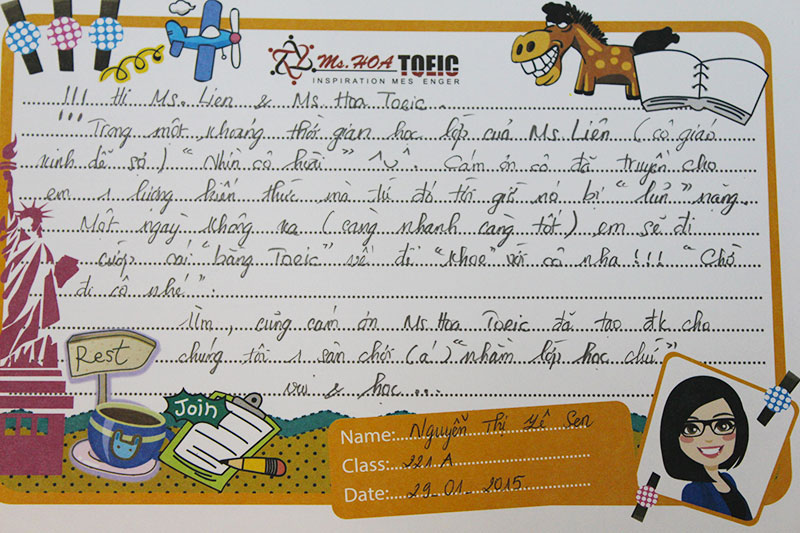 Ms. HOA TOEIC
INSPIRATION MES ENGER
!!! Hi Ms. Lien & Ms. Hoa Toeic.
Trong một khoảng thời gian học lớp của Ms. Liên (cô giáo
xinh dễ sợ) "Nhìn cô hoài" . Cám ơn cô đã truyền cho
em 1 lượng kiến thức mà từ đó tới giờ nó bị "lủn" nặng...
Một ngày không xa (càng nhanh càng tốt) em sẽ đi
cướp cái "bằng Toeic" về để "khoe" với cô nha!!! "Chờ
đi cô nhé".
Ưm, cũng cám ơn Ms. Hoa Toeic đã tạo đk cho
chúng tôi 1 sân chơi (á) "nhầm lớp học chứ"
vui & học...
Rest
Join
Name: Nguyễn Thị Yê Sen
Class: 221A
Date: 29-01-2015